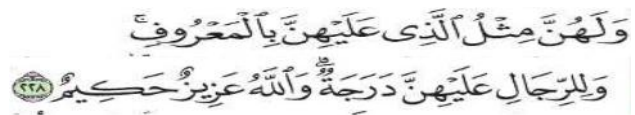 وَلَهُنَّ مِثْلُ ٱلَّذِى عَلَيْهِنَّ بِٱلْمَعْرُوفِ ۚ
وَلِلرِّجَالِ عَلَيْهِنَّ دَرَجَةٌ ۗ وَٱللَّهُ عَزِيزٌ حَكِيمٌ ٢٢٨